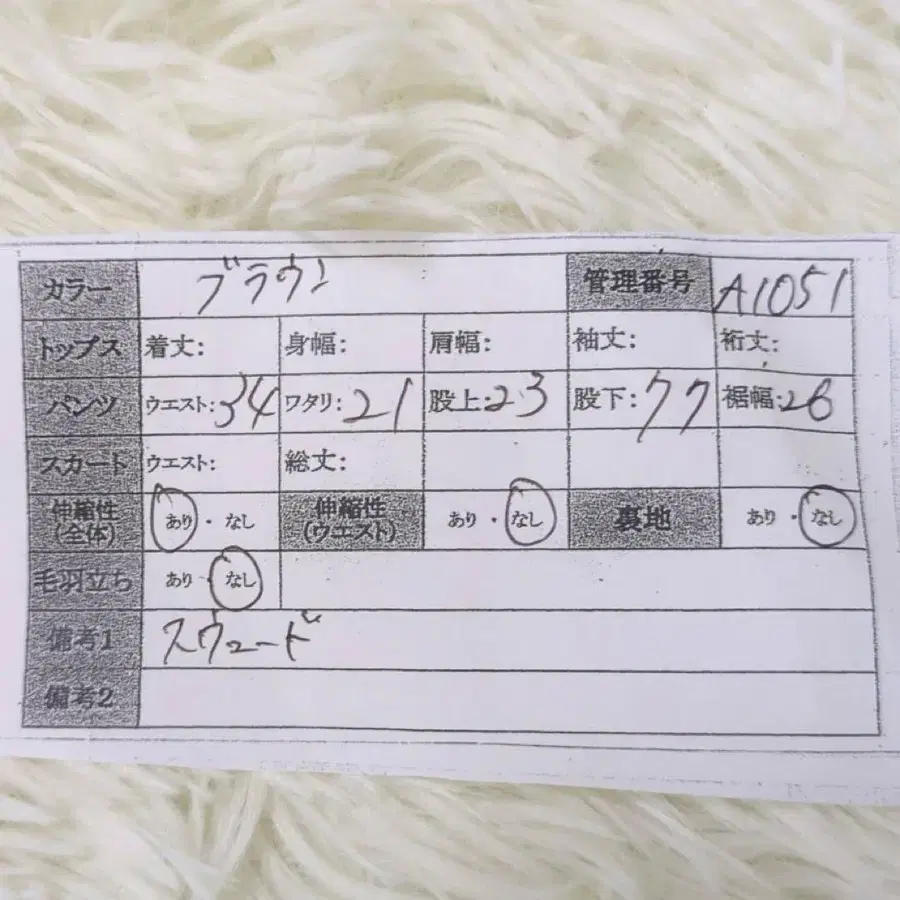 カラー ブラウン 管理番号 A1051
トップス 着丈: 身幅: 肩幅: 袖丈: 裄丈:
パンツ ウエスト:34 ワタリ:21 股上:23 股下:77 裾幅:26
スカート ウエスト: 総丈:
伸縮性(全体) あり・なし 伸縮性(ウエスト) あり・なし 裏地 あり・なし
毛羽立ち あり・なし
備考1 スウェード
備考2